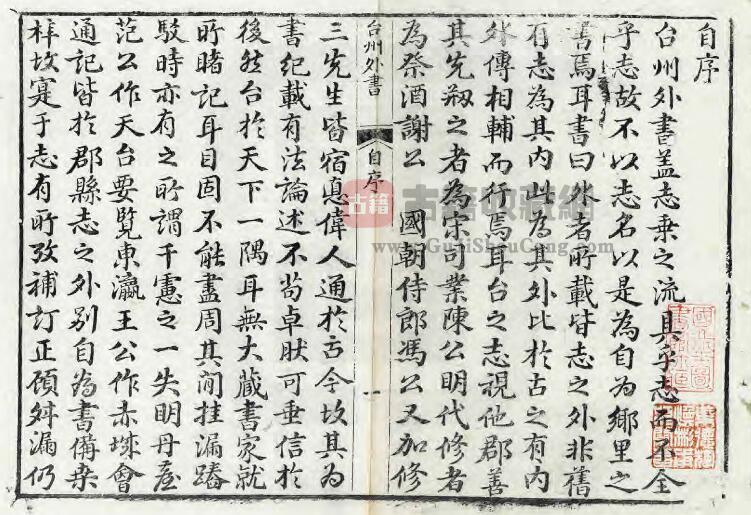 自序
台州外書蓋志乗之流具乎志而不全
乎志故不以志名以是為自為鄉里之
書焉耳書曰外者所載皆志之外非舊
有志為其内此為其外比於古之有内
外傳相輔而行焉耳台之志視他郡善
其先剏之者為宋司業陳公明代修者
為祭酒謝公 國朝侍郎馮公又加修
台州外書 自序 一
三先生皆宿悳偉人通於古今故其為
書紀載有法論述不苟卓肰可垂信於
後然台於天下一隅耳無大藏書家就
所睹記耳目固不能盡周其間挂漏踳
駁時亦有之所謂千慮之一失明丹崖
范公作天台要覽東瀛王公作赤城會
通記皆於郡縣志之外別自為書備桒
梓故寔于志有所攷補訂正顧舛漏仍
古籍
古籍收藏網
www.GuJiShouCang.com